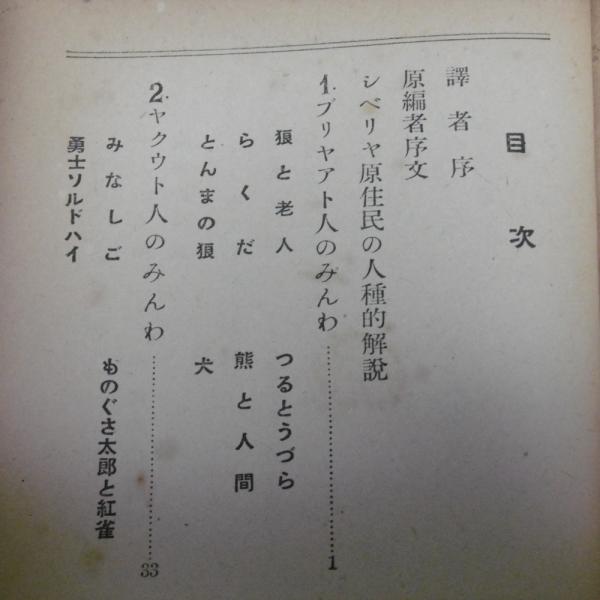 目次
譯者序
原編者序文
シベリヤ原住民の人種的解說
1. ブリヤアト人のみんわ……………………1
狼と老人
つるとうづら
らくだ
熊と人間
とんまの狼
犬
2. ヤクウト人のみんわ……………………33
みなしご
ものぐさ太郎と紅雀
勇士ソルドハイ